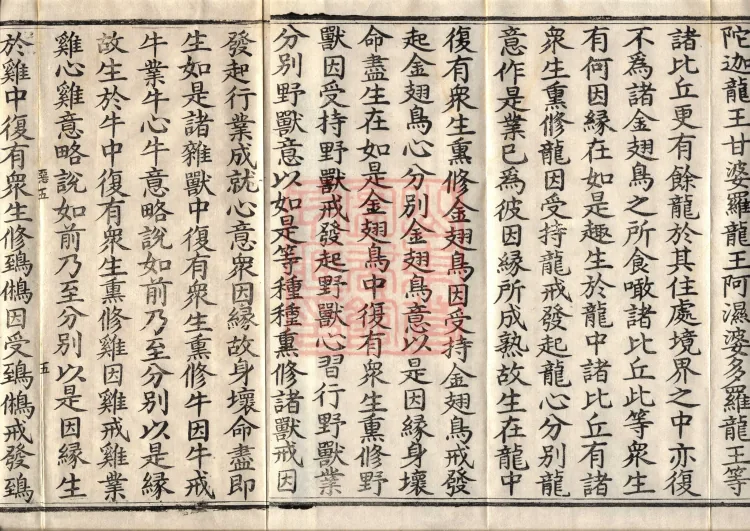 陀迦龍王甘婆羅龍王阿濕婆多羅龍王等
諸比丘更有餘龍於其住處境界之中亦復
不為諸金翅鳥之所食噉諸比丘此等衆生
有何因縁在如是趣生於龍中諸比丘有諸
衆生熏修龍因受持龍戒發起龍心分別龍
意作是業已為彼因縁所成熟故生在龍中
復有衆生熏修金翅鳥因受持金翅鳥戒發
起金翅鳥心分別金翅鳥意以是因縁身壞
命盡生在如是金翅鳥中復有衆生熏修野
獸因受持野獸戒發起野獸心習行野獸業
分別野獸意以如是等種種熏修諸獸戒因
發起行業成就心意衆因縁故身壞命盡即
生如是諸雜獸中復有衆生熏修牛因牛戒
牛業牛心牛意略說如前乃至分別以是縁
故生於牛中復有衆生熏修雞因雞戒雞業
雞心雞意略說如前乃至分別以是因縁生
惡五
五
於雞中復有衆生修鵄鵂因受鵄鵂戒發鵄